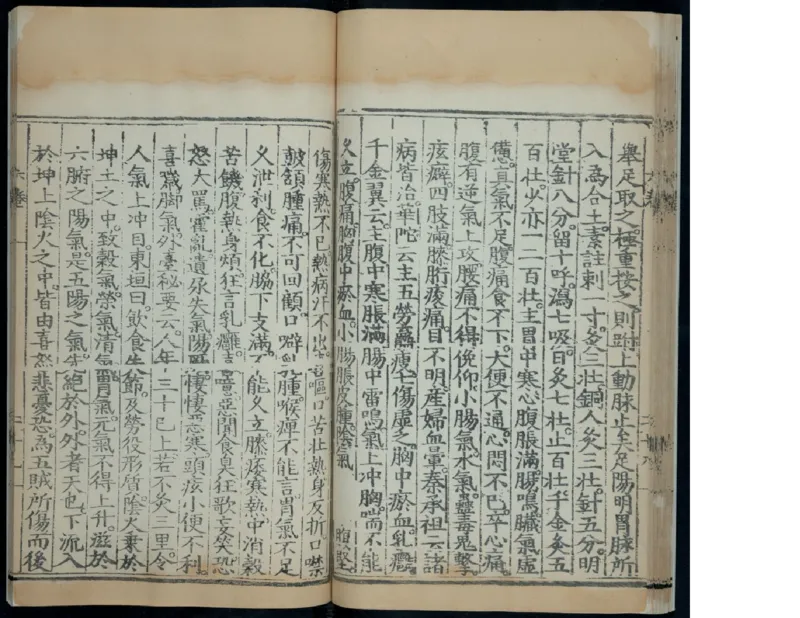 舉足取之極重按之則趺上動脉止矣足陽明胃脉所
入為合土素註刺一寸灸三壯銅人灸三壯針五分明
堂針八分留十呼瀉七吸日灸七壯止百壯千金灸五
百壯少亦一二百壯主胃中寒心腹脹滿腸鳴臟氣虛
憊真氣不足腹痛食不下大便不通心悶不已卒心痛
腹有逆氣上攻腰痛不得俛仰小腸氣水氣蠱毒鬼擊
痃癖四肢滿膝胻痠痛目不明產婦血暈秦承祖云諸
病皆治華陀云主五勞羸瘦七傷虛乏胸中瘀血乳癰
千金翼云主腹中寒脹滿腸中雷鳴氣上冲胸喘不能
久立腹痛胸腹中瘀血小腸脹皮腫陰氣 腹堅
傷寒熱不已熱病汗不出 嘔口苦壯熱身反折口噤
鼓頷腫痛不可回顧口噼乳腫喉痺不能言胃氣不足
久泄利食不化脇下支滿不能久立膝痿寒熱中消穀
苦饑腹熱身煩狂言乳癰 噫惡聞食臭狂歌妄笑恐
怒大罵霍亂遺尿失氣陽 悽悽惡寒頭疾小便不利
喜噦脚氣外臺秘要云人年三十已上若不灸三里令
人氣上冲目東垣曰飲食失節及勞役形質陰火乗於
坤土之中致穀氣榮氣清氣胃氣元氣不得上升滋於
六腑之陽氣是五陽之氣先絕於外外者天也下流入
於坤土陰火之中皆由喜怒悲憂恐為五賊所傷而後